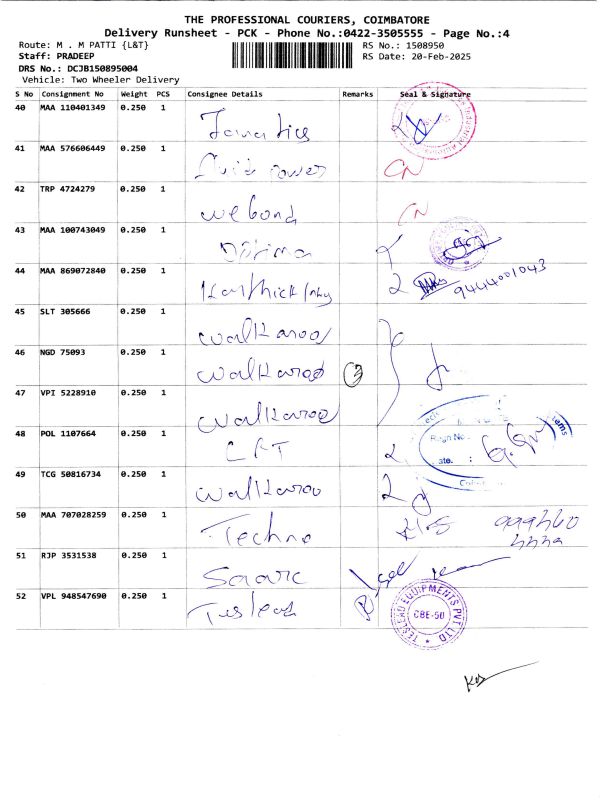 THE PROFESSIONAL COURIERS, COIMBATORE
Delivery Runsheet - PCK - Phone No.:0422-3505555 - Page No.:4
Route: M . M PATTI {L&T} RS No.: 1508950
Staff: PRADEEP RS Date: 20-Feb-2025
DRS No.: DCJB150895004
Vehicle: Two Wheeler Delivery
S No Consignment No Weight PCS Consignee Details Remarks Seal & Signature
40 MAA 110401349 0.250 1
41 MAA 576606449 0.250 1 Fluid power CN
42 TRP 4724279 0.250 1 webond CN
43 MAA 100743049 0.250 1
44 MAA 869072840 0.250 1 Karthick 2 9444001043
45 SLT 305666 0.250 1 walkaroo
46 NGD 75093 0.250 1 walkaroo 3
47 VPI 5228910 0.250 1 walkaroo
48 POL 1107664 0.250 1 Regn No.
ate. :
49 TCG 50816734 0.250 1 walkaroo 2
50 MAA 707028259 0.250 1 Techno
51 RJP 3531538 0.250 1 Saarc
52 VPL 948547690 0.250 1 Teslead TESLEAD EQUIPMENTS PVT LTD CBE-50